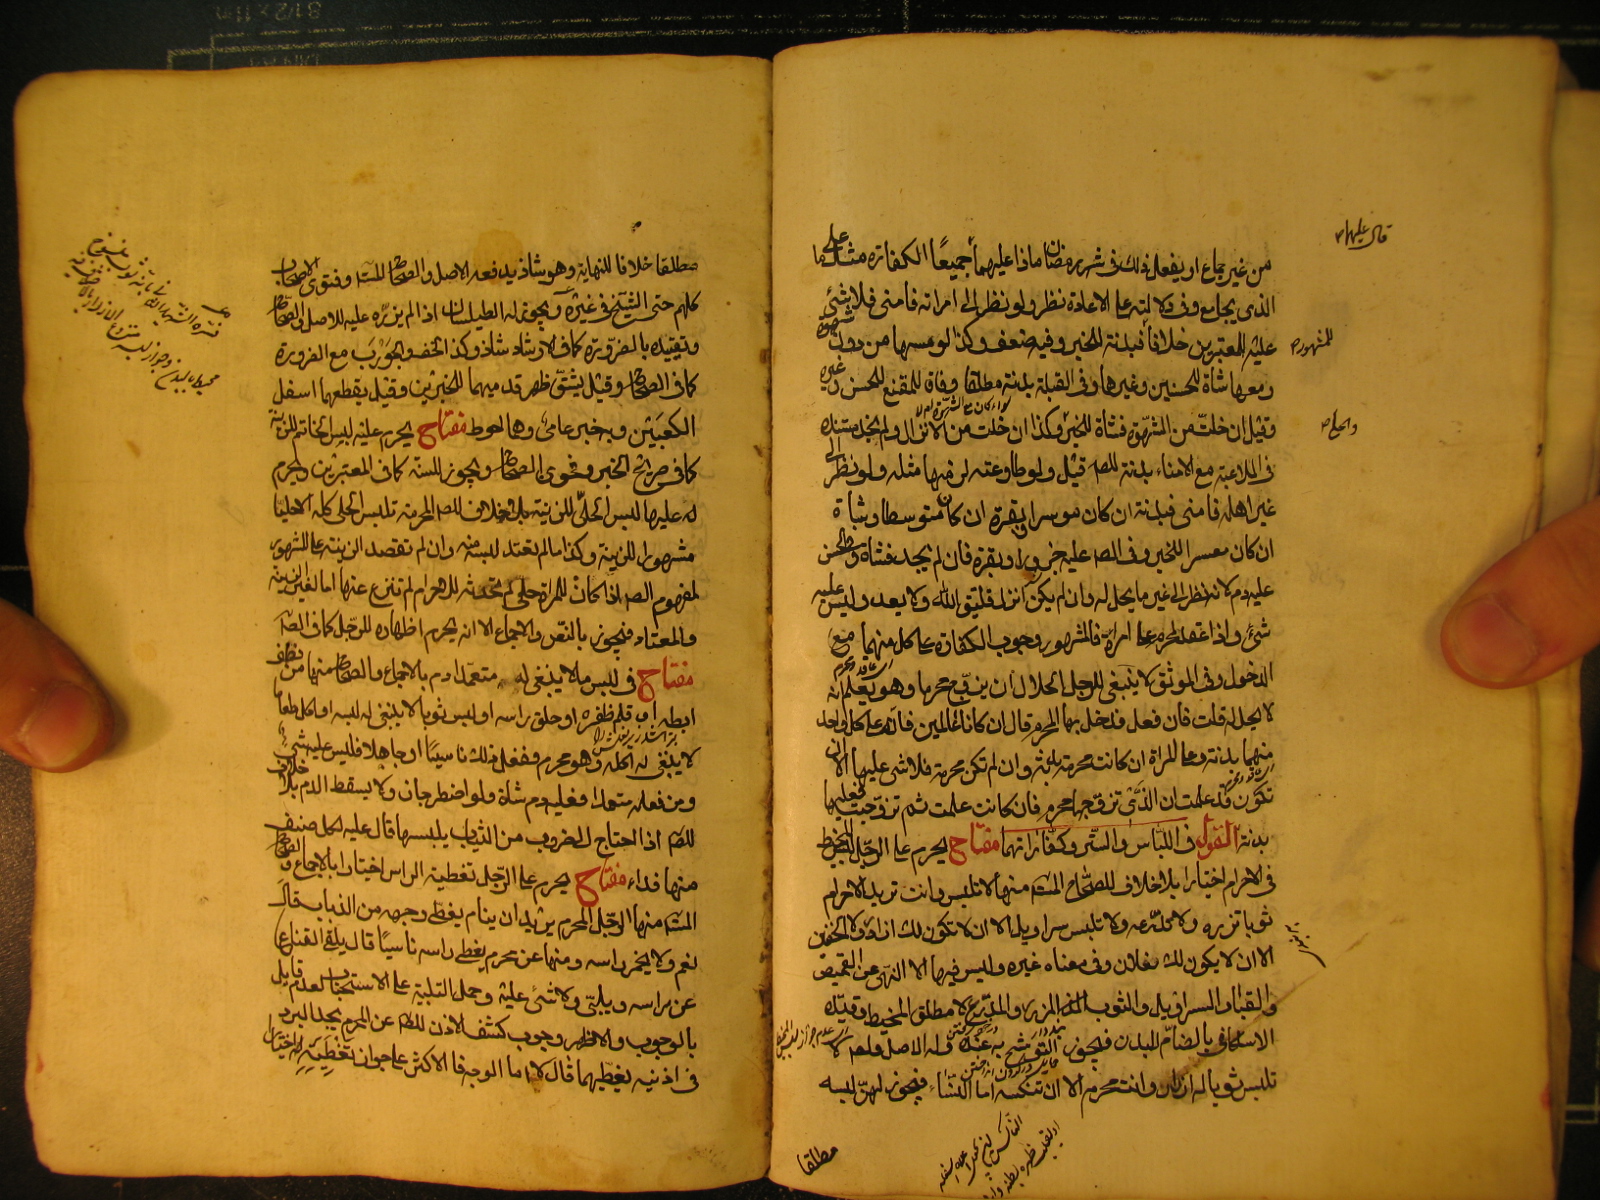 من غير جماع او يفعل ذلك فى شهر رمضان ماذا عليهما جميعًا الكفارة مثل ما على
الذى يجامع وفى دلالته على الاعادة نظر ولو نظر الى امراته فامنى فلا شئ
عليه للمعتبرين خلافا فبدنة للخبر وفيه ضعف وكذا لو مسها من دون شهوة
ومعها شاة للحسنين وغيرها وفى القبلة بدنة مطلقا وفاقا للمقنع للحسن وغيره
وقيل ان خلت من الشهوة فشاة للخبر وكذا ان خلت من الانزال ولم نجد مستنده
فى الملاعبة مع الامناء بدنة للصحيح قيل ولو طاوعته لزمها مثله ولو نظر الى
غير اهله فامنى فبدنة ان كان موسرا وبقرة ان كان متوسطا وشاة
ان كان معسرا للخبر وفى الصحيح عليه جزور او بقرة فان لم يجد فشاة وفى الحسن
عليه دم لانه نظر الى غير ما يحل له وان لم يكن انزل فليتق الله ولا يعد وليس عليه
شئ واذا عقد المحرم على امراة فالمشهور وجوب الكفارة على كل منهما مع
الدخول وفى الموثق لا ينبغى للرجل الحلال ان يزوج محرما وهو يعلم انه
لا يحل له قلت فان فعل فدخل بها المحرم قال ان كانا عالمين فان على كل واحد
منهما بدنة وعلى المراة ان كانت محرمة بدنة وان لم تكن محرمة فلا شئ عليها الا ان
تكون قد علمت ان الذى تزوجها محرم فان كانت علمت ثم تزوجت فعليها
بدنة القول فى اللباس والستر وكفاراتهما مفتاح يحرم على الرجل لبس المخيط
فى الاحرام اختيارا بلا خلاف للصحاح المستفيضة منها لا تلبس وانت تريد الاحرام
ثوبا تزره ولا تدرعه ولا تلبس سراويل الا ان لا تكون لك ازار ولا الخفين
الا ان لا يكون لك نعلان وفى معناه غيره وليس فيها الا النهى عن القميص
والقباء والسراويل والثوب المزرر والمدرع لا مطلق المخيط وقيده
الاسكافى بالضام للبدن فيجوز التوشح به عنده وله الاصل ولعدم
تلبس ثوبا له ازرار وانت محرم الا ان تنكسه اما النساء فيجوز لهن لبسه
مطلقا
قال عليهما
للمشهور
مطلقا خلافا للنهاية وهو شاذ يدفعه الاصل والصحاح المستفيضة وفتوى الاصحاب
كلهم حتى الشيخ فى غيره ويجوز له الطيلسان اذا لم يزره عليه للاصل والصحاح
وتقييده بالضرورة كما فى الارشاد شاذ وكذا الخف والجورب مع الضرورة
كما فى الصحاح وقيل يشق ظهر قدميهما للخبرين وقيل يقطعهما اسفل
الكعبين وبه خبر عامى وهما احوط مفتاح يحرم عليه لبس الخاتم للزينة
كما فى صريح الخبر وفحوى الصحاح ويجوز للسنة كما فى المعتبرين ويحرم
له عليها لبس الحلى للزينة بلا خلاف للصحيح المحرمة تلبس الحلى كله الا حليا
مشهورا للزينة وكذا ما لم تعتد لبسه منه وان لم تقصد الزينة على المشهور
لمفهوم الصحيح اذا كان للمراة حلى لم تحدثه للاحرام لم تنزع عنها اما لغير الزينة
والمعتاد فيجوز بالنص والاجماع الا انه يحرم اظهاره للرجل كما فى الصحيح
مفتاح فى لبس ما لا ينبغى له متعمدا دم بالاجماع والصحاح منها من نتف
ابطه او قلم ظفره او حلق راسه او لبس ثوبا لا ينبغى له لبسه او اكل طعاما
لا ينبغى له اكله وهو محرم ففعل ذلك ناسيا او جاهلا فليس عليه شئ
ومن فعله متعمدا فعليه دم شاة ولو اضطر جاز ولا يسقط الدم بلا خلاف
للصحيح اذا احتاج الى ضروب من الثياب يلبسها قال عليه لكل صنف
منها فداء مفتاح يحرم على الرجل تغطية الراس اختيارا بالاجماع والصحاح
المستفيضة منها الرجل المحرم يريد ان ينام يغطى وجهه من الذباب قال
نعم ولا يخمر راسه ومنها عن محرم يغطى راسه ناسيا قال يلقى القناع
عن راسه ويلبى ولا شئ عليه وحمل التلبية على الاستحباب لعدم قايل
بالوجوب والاظهر وجوب كشف الاذن للصحيح عن المحرم يجد البرد
فى اذنيه يغطيهما قال لا اما الوجه فالاكثر على جواز تغطيته له اختيارا